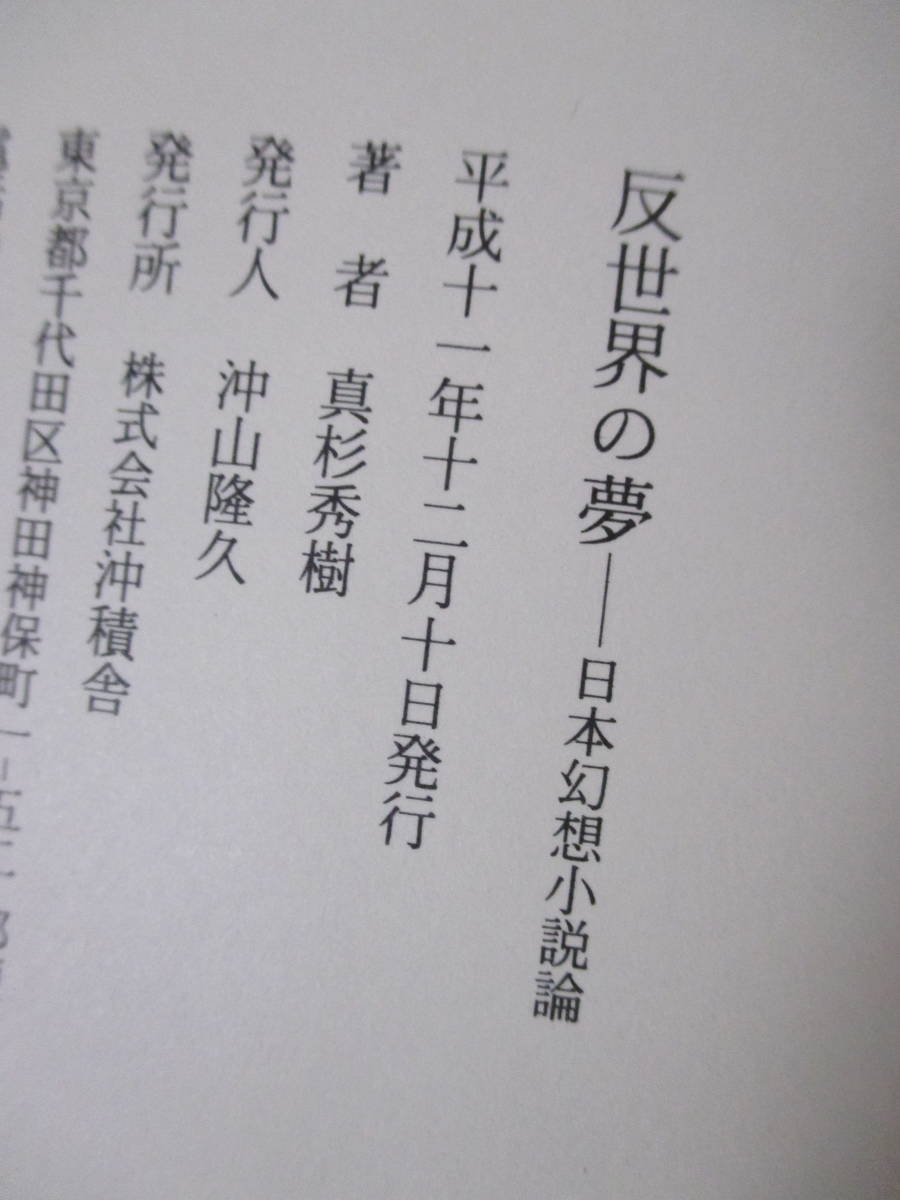 反世界の夢――日本幻想小説論
平成十一年十二月十日発行
著 者 真杉秀樹
発行人 沖山隆久
発行所 株式会社沖積舎
東京都千代田区神田神保町一-五二